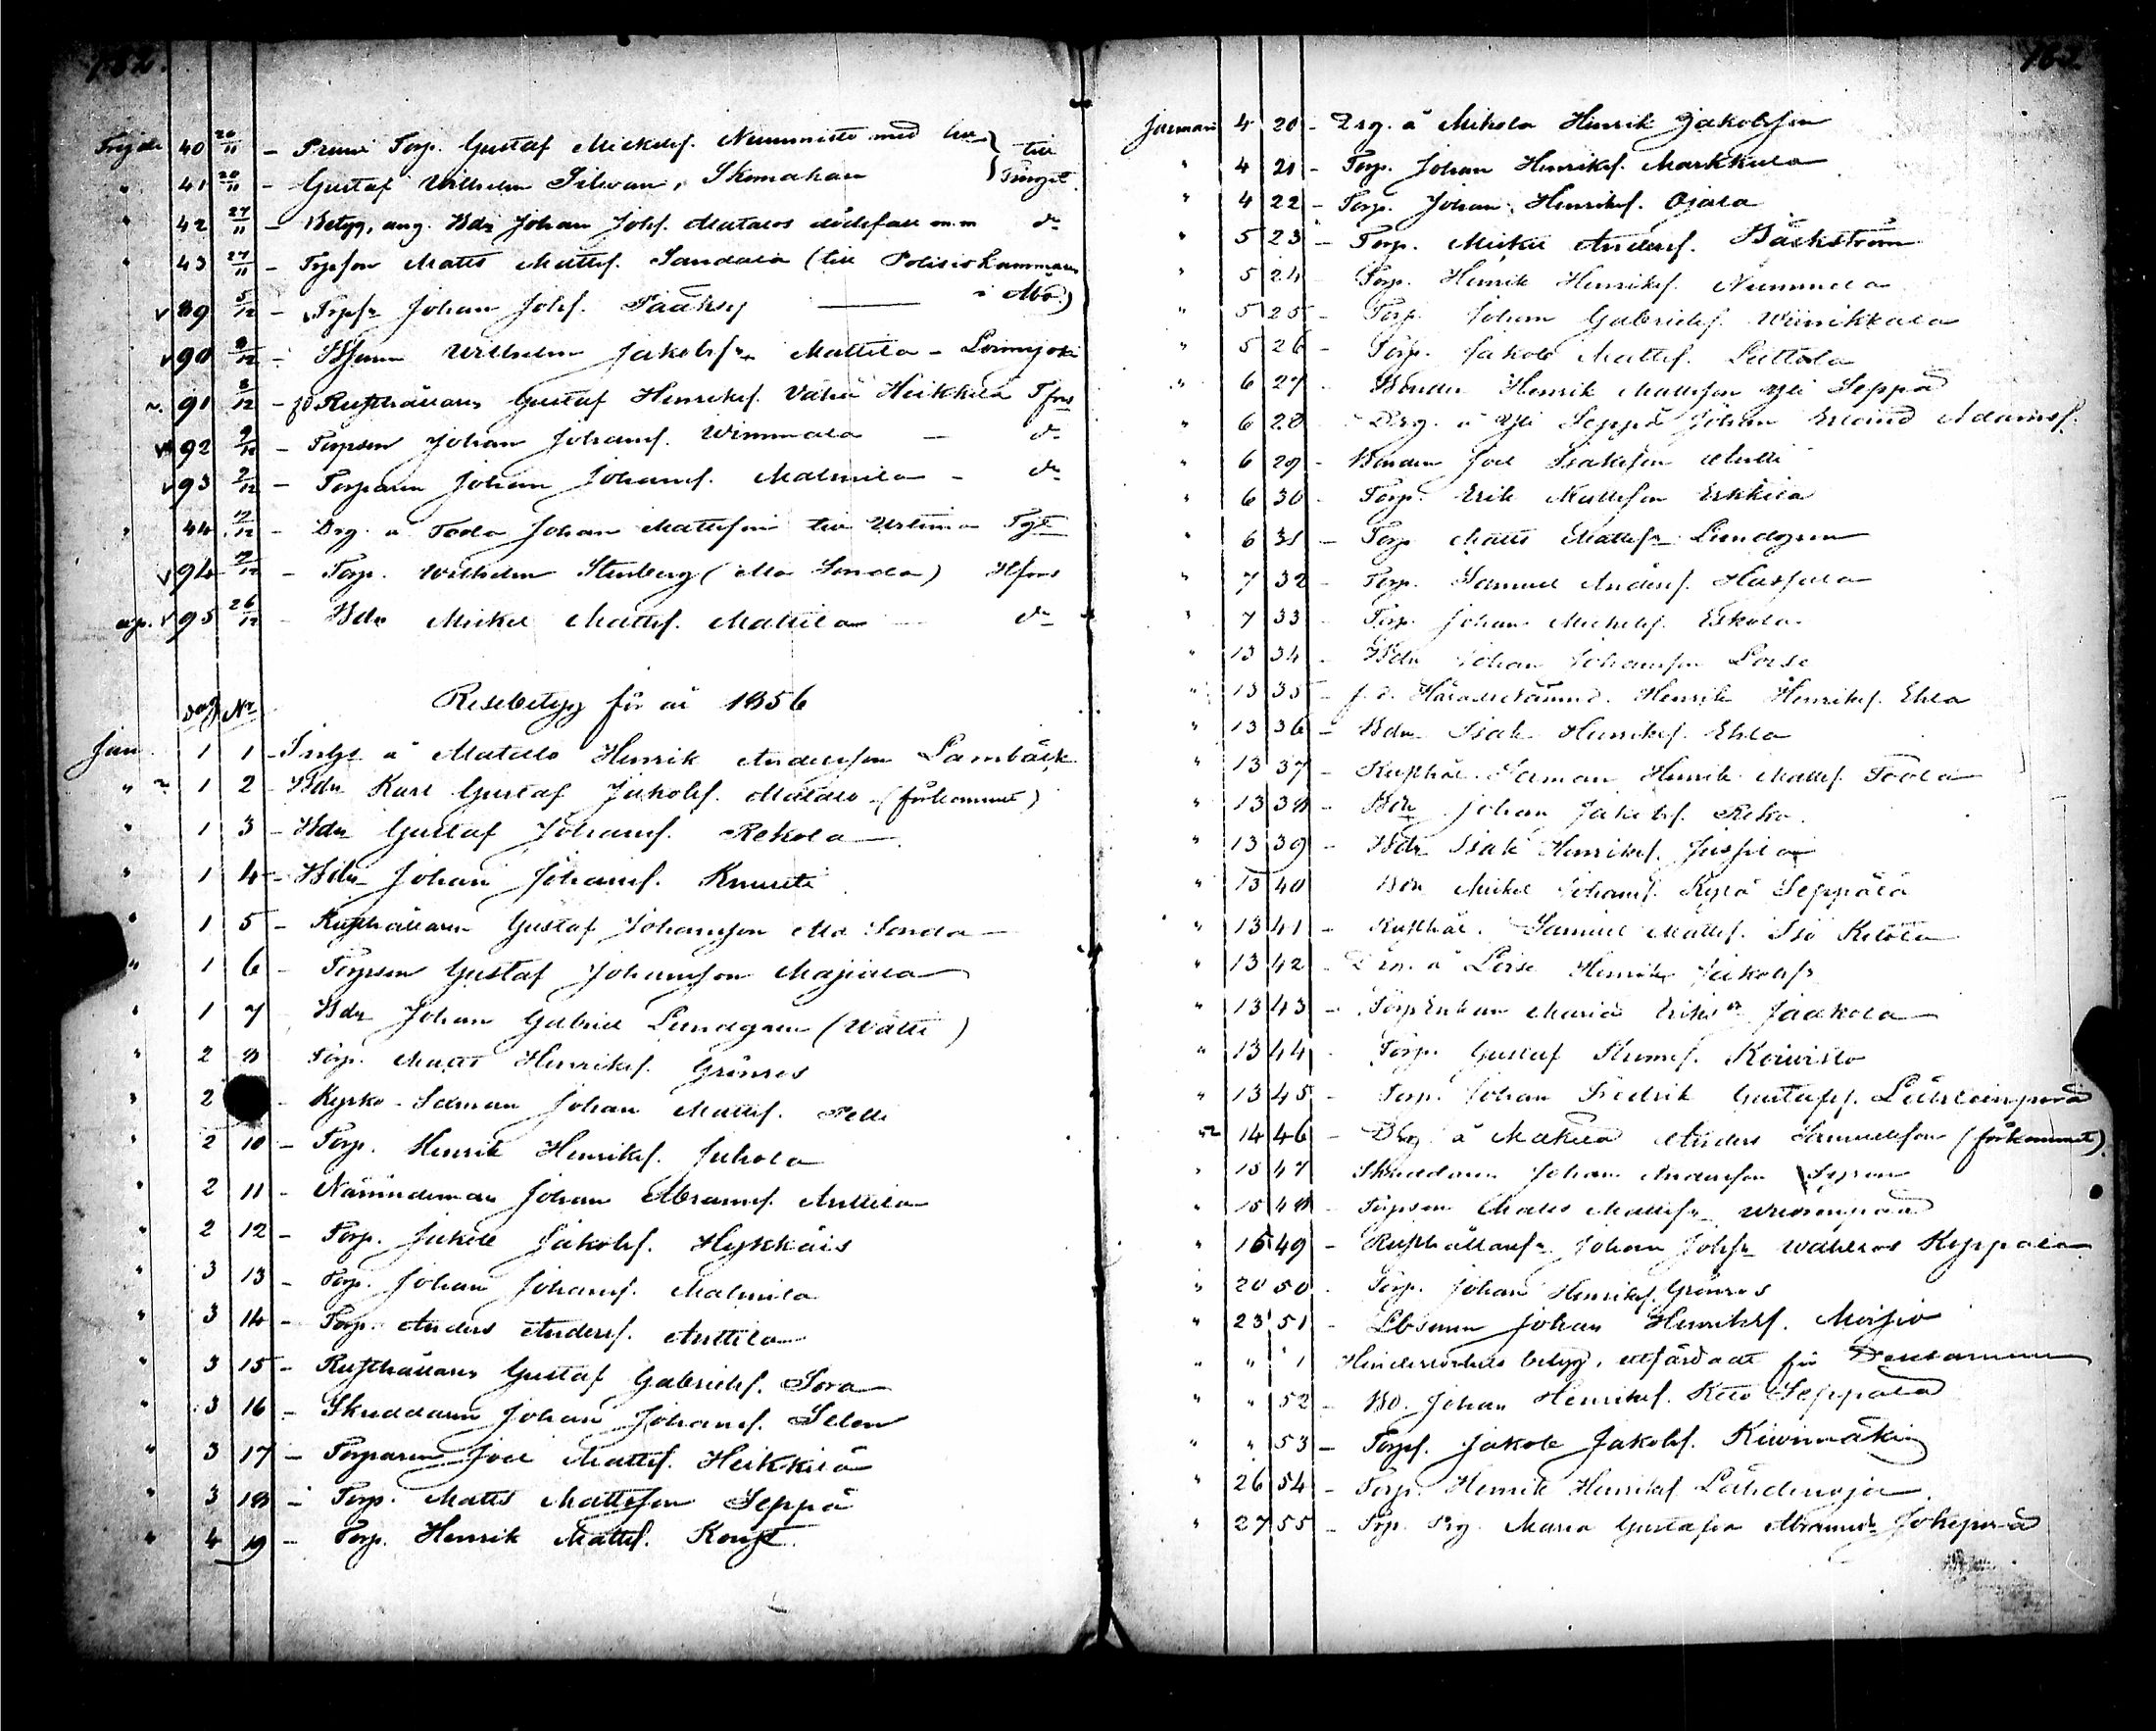 40 20/11 - Torp. Gustaf Mickelsf. Nummisto med till
" 41 20/11 - Gustaf Wilhelm Silvan, Tinget
" 42 27/11 - Betyg, ang. Bdn Johan Johsf. Matalos dödsfall m.m do
" 43 27/11 - Torpson Matts Mattsf. Sandala (till Politiekammaren
v 89 5/12 - Johan Johsf. Pääksy — i Åbo)
v 90 8/12 - Wilhelm Jakobsf. Mattila - Loimijoki
91 8/12 - Rusthållaren Gustaf Henriksf. Vähä Heikkilä
v 92 9/12 - Torpson Johan Johansf. Wimmala — do
v 93 9/12 - Torparen Johan Johansf. Malmila - do
" 44 12/12 - Drg. å Toola Johan Mattsson
v 94 - Torp. Wilhelm Stenberg (Ala Sonda) Hfors
v 95 26/12 - Bdn Mickel Mattsf. Mattila — do
Dag No Resebetyg för år 1856
Jan. 1 1 - å Matalo Henrik Andersson Lambäck
" 1 2 - Bdn Karl Gustaf Jakobsf. Matalo (förkommet)
" 1 3 - Bdn Gustaf Johansf. Rekola
" 1 4 - Bdn Johan Johansf. Knuuti
" 1 5 - Rusthållaren Gustaf Johansson Ala Sonda
" 1 6 - Torpson Gustaf Johansson Majiala
" 1 7 Bdn Johan Gabriel Lundgren (Wätti)
" 2 8 Torp. Matts Henriksf. Grönros
" 2 - Kyrko-Sexman Johan Mattsf. Pelli
" 2 10 - Torp. Henrik Henriksf. Juhola
" 2 11 - Nämndeman Johan Abramsf. Anttila
" 2 12 - Torp. Jakob Jakobsf. Hykkäis
" 3 13 - Torp. Johan Johansf. Malmila
" 3 14 - Torp. Anders Andersf. Anttila
" 3 15 - Rusthållaren Gustaf Gabrielsf. Sora
" 3 16 - Skräddaren Johan Johansf. Selen
" 3 17 - Torparen Joel Mattsf. Heikkilä
" 3 18 - Torp. Matts Mattsson Seppä
" 4 19 - Torp. Henrik Mattsf. Konst
162
Januari 4 20 - Drg. å Mikola Henrik Jakobsson
" 4 21 - Torp. Johan Henriksf. Markkula
" 4 22 - Torp. Johan Henriksf. Ojala
" 5 23 - Torp. Mickel Andersf. Bäckström
" 5 24 - Torp. Henrik Henriksf. Nummela
" 5 25 - Torp. Johan Gabrielsf. Wiinikkala
" 5 26 - Torp. Jakob Mattsf.
" 6 27 - Bonden Henrik Mattsson Yli Seppä
" 6 28 - Drg. å Yli Seppä Johan Erland Adamsf.
" 6 29 - Bonden Joel Isaksson
" 6 30 - Torp. Erik Mattsson Erkkilä
" 6 31 - Torp Matts Mattsf. Lundgren
" 7 32 - Torp. Samuel Andersf.
" 7 33 - Torp. Johan Mickelsf. Eskola
" 13 34 - Bdn Johan Johansson Loise
" 13 35 - f.d. Häradsnämnd. Henrik Henriksf. Ehla
" 13 36 - Bdn Isak Henriksf. Ehla
" 13 37 - Rusthål. Sexman Henrik Mattsf. Toola
" 13 38 - Bdn Johan Jakobsf. Reko
" 13 39 - Bdn Isak Henriksf. Jussila
" 13 40 Bdn Mickel Johansf. Kylä Seppälä
" 13 41 - Rusthål. Samuel Mattsf. Iso Ketola
" 13 42 - Drg. å Loise Henrik Jakobsf.
" 13 43 - Torp Enkan Maria Eriksdr Jaakola
" 13 44 - Torp. Gustaf Koivisto
" 13 45 - Torp. Johan Fredrik Gustafsf. Lähteenperä
" 14 46 - Drg. å Makila Anders Samuelsson (förkommet)
" 15 47 Skräddaren Johan Andersson
" 15 48 - Torpson Matts Mattsf.
" 16 49 - Rusthållarens Johan Johsf. Wahlros Kyppala
" 20 50 - Torp. Johan Henriksf. Grönros
" 23 51 - Johan Henriksf. Moisio
" " 1 Hinderslöshets betyg, utfärdadt för Densamme
" " 52 - Bd. Johan Henriksf. Keto Seppälä
" " 53 - Torpf. Jakob Jakobsf. Kivimäki
" 26 54 - Torp. Henrik Henriksf. Lähdenoja
" 27 55 - Torp. Maria Gustafva Jokiperä